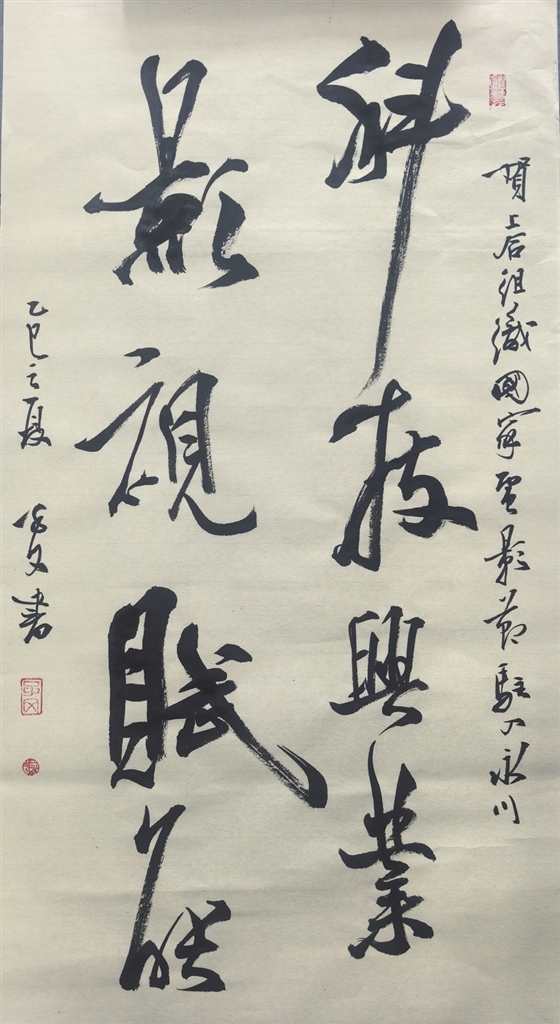 賀上合組織國家電影節駐入永川
科技興業
影視賦能
乙巳之夏 文書